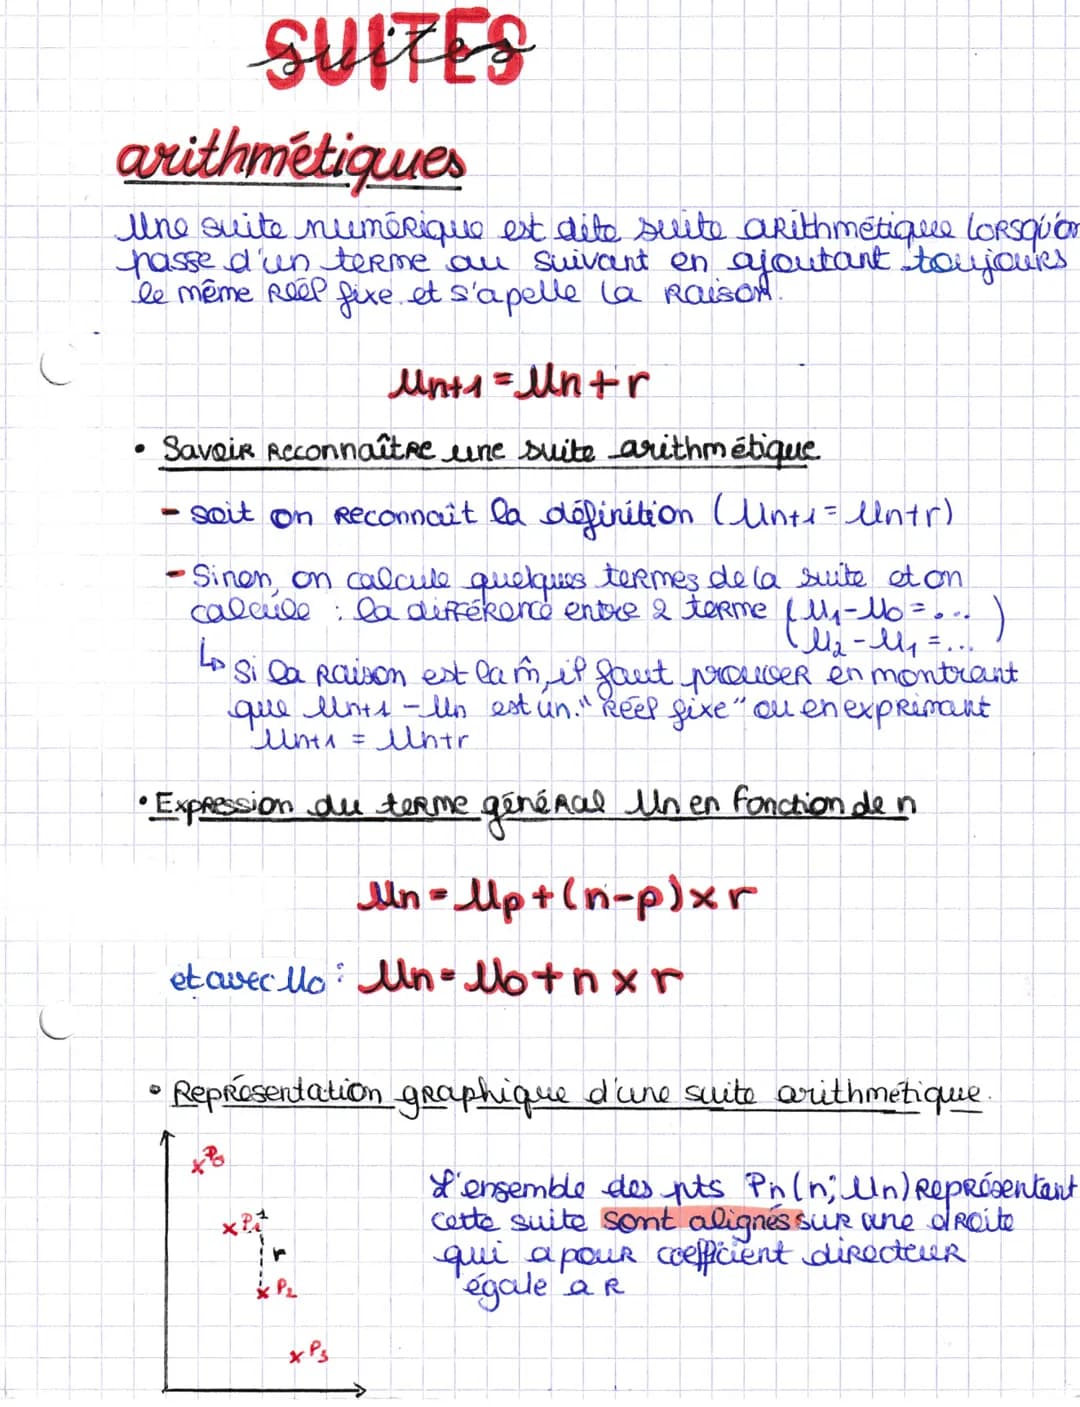 SUITES
suites
arithmétiques
Une suite numérique est dite suite arithmétique lorsqu'on
passe d'un terme au suivant en ajoutant toujours
le même réel fixe et s'apelle la raison.
Un+1 = Un + r
• Savoir reconnaître une suite arithmétique
- soit on reconnait la définition (Un+1 = Un+r)
- Sinon, on calcule quelques termes de la suite et on
calcule : la différence entre 2 terme (U1-U0 = ...
U2 - U1 = ...)
↳ Si la raison est la m̂, il faut prouver en montrant
que Un+1 - Un est un "réel fixe" ou en exprimant
Un+1 = Un+r
• Expression du terme général Un en fonction de n
Un = Up + (n-p) x r
et avec U0 : Un = U0 + n x r
• Représentation graphique d'une suite arithmétique.
x P0
L'ensemble des pts Pn (n; Un) représentant
x P1
cette suite sont alignés sur une droite
r
qui a pour coefficient directeur
x P2
égale a r
x P3